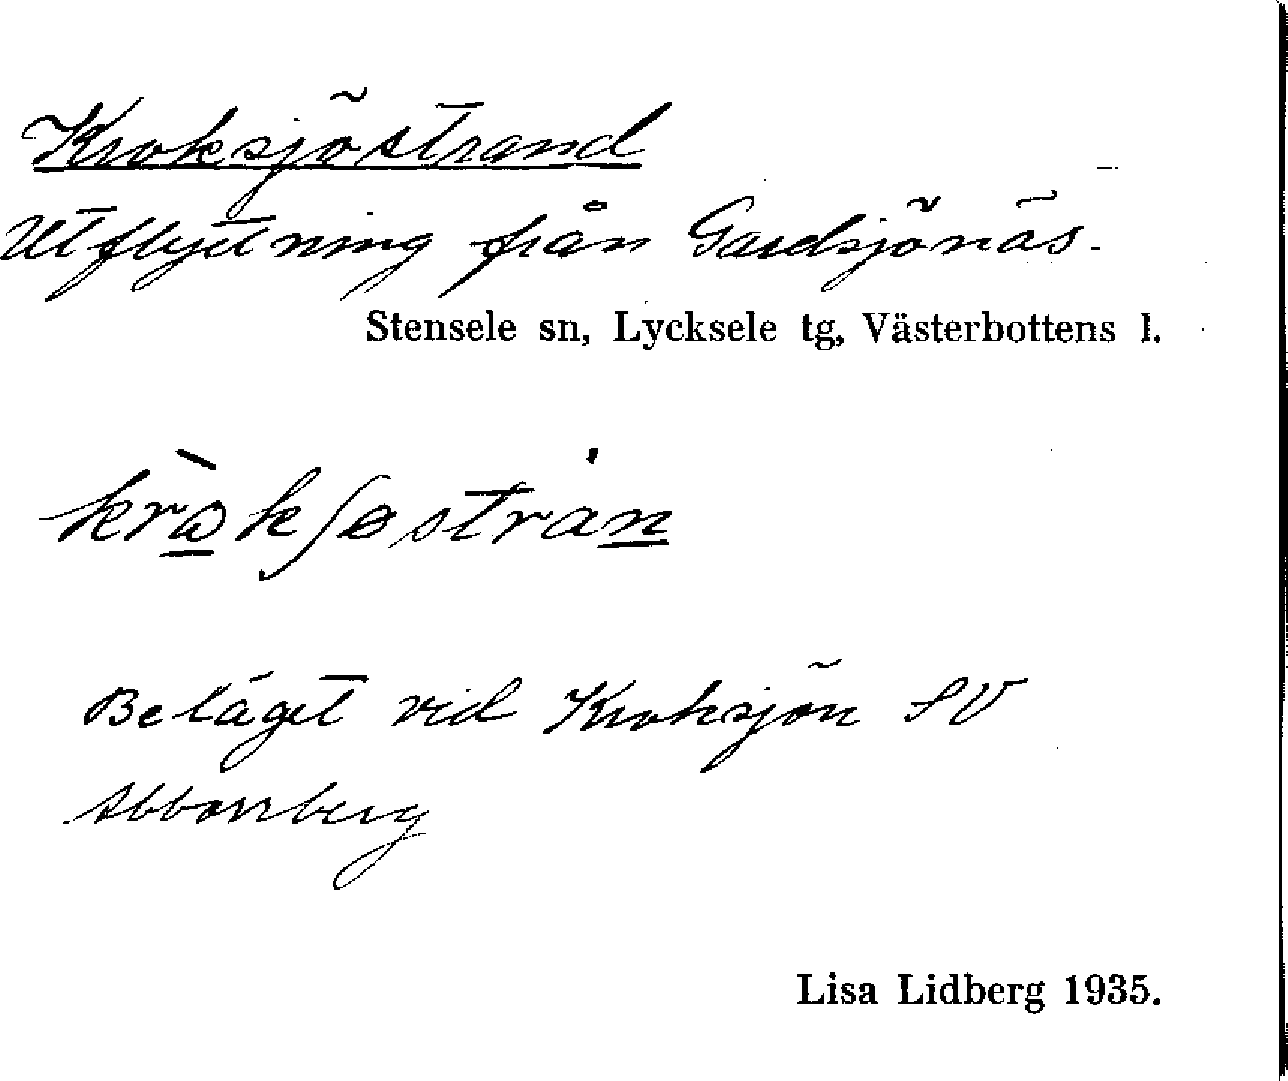 Kroksjöstrand
Utflyttning från Gardsjönäs.
Stensele sn, Lycksele tg, Västerbottens l.
Beläget vid Kroksjön SV
Abborrberg
Lisa Lidberg 1935.